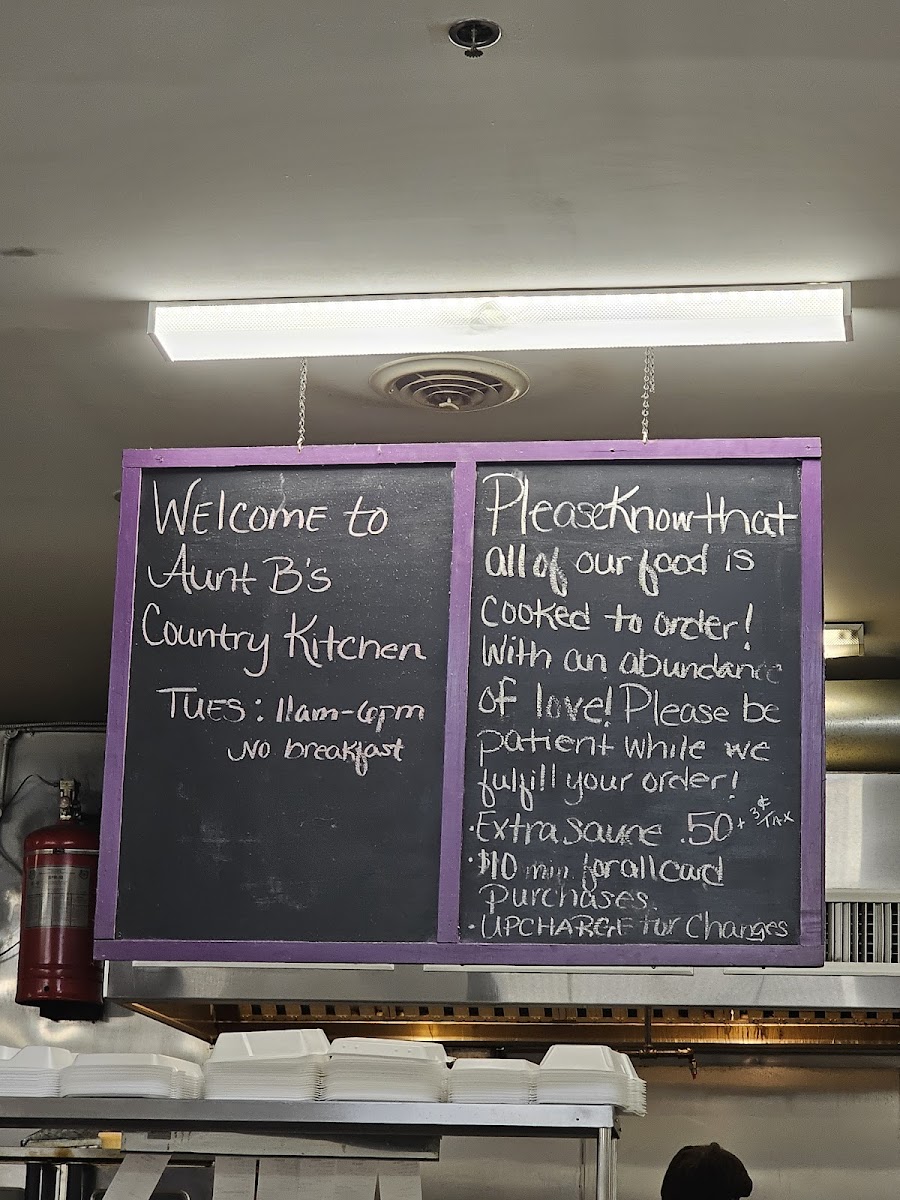 Welcome to
Aunt B's
Country Kitchen
Tues: 11am-6pm
No breakfast
Please Know that
all of our food is
cooked to order!
With an abundance
of love! Please be
patient while we
fulfill your order!
• Extra Sauce .50 + 3¢ TAX
• $10 min for all card
purchases.
• UPCHARGE for Changes